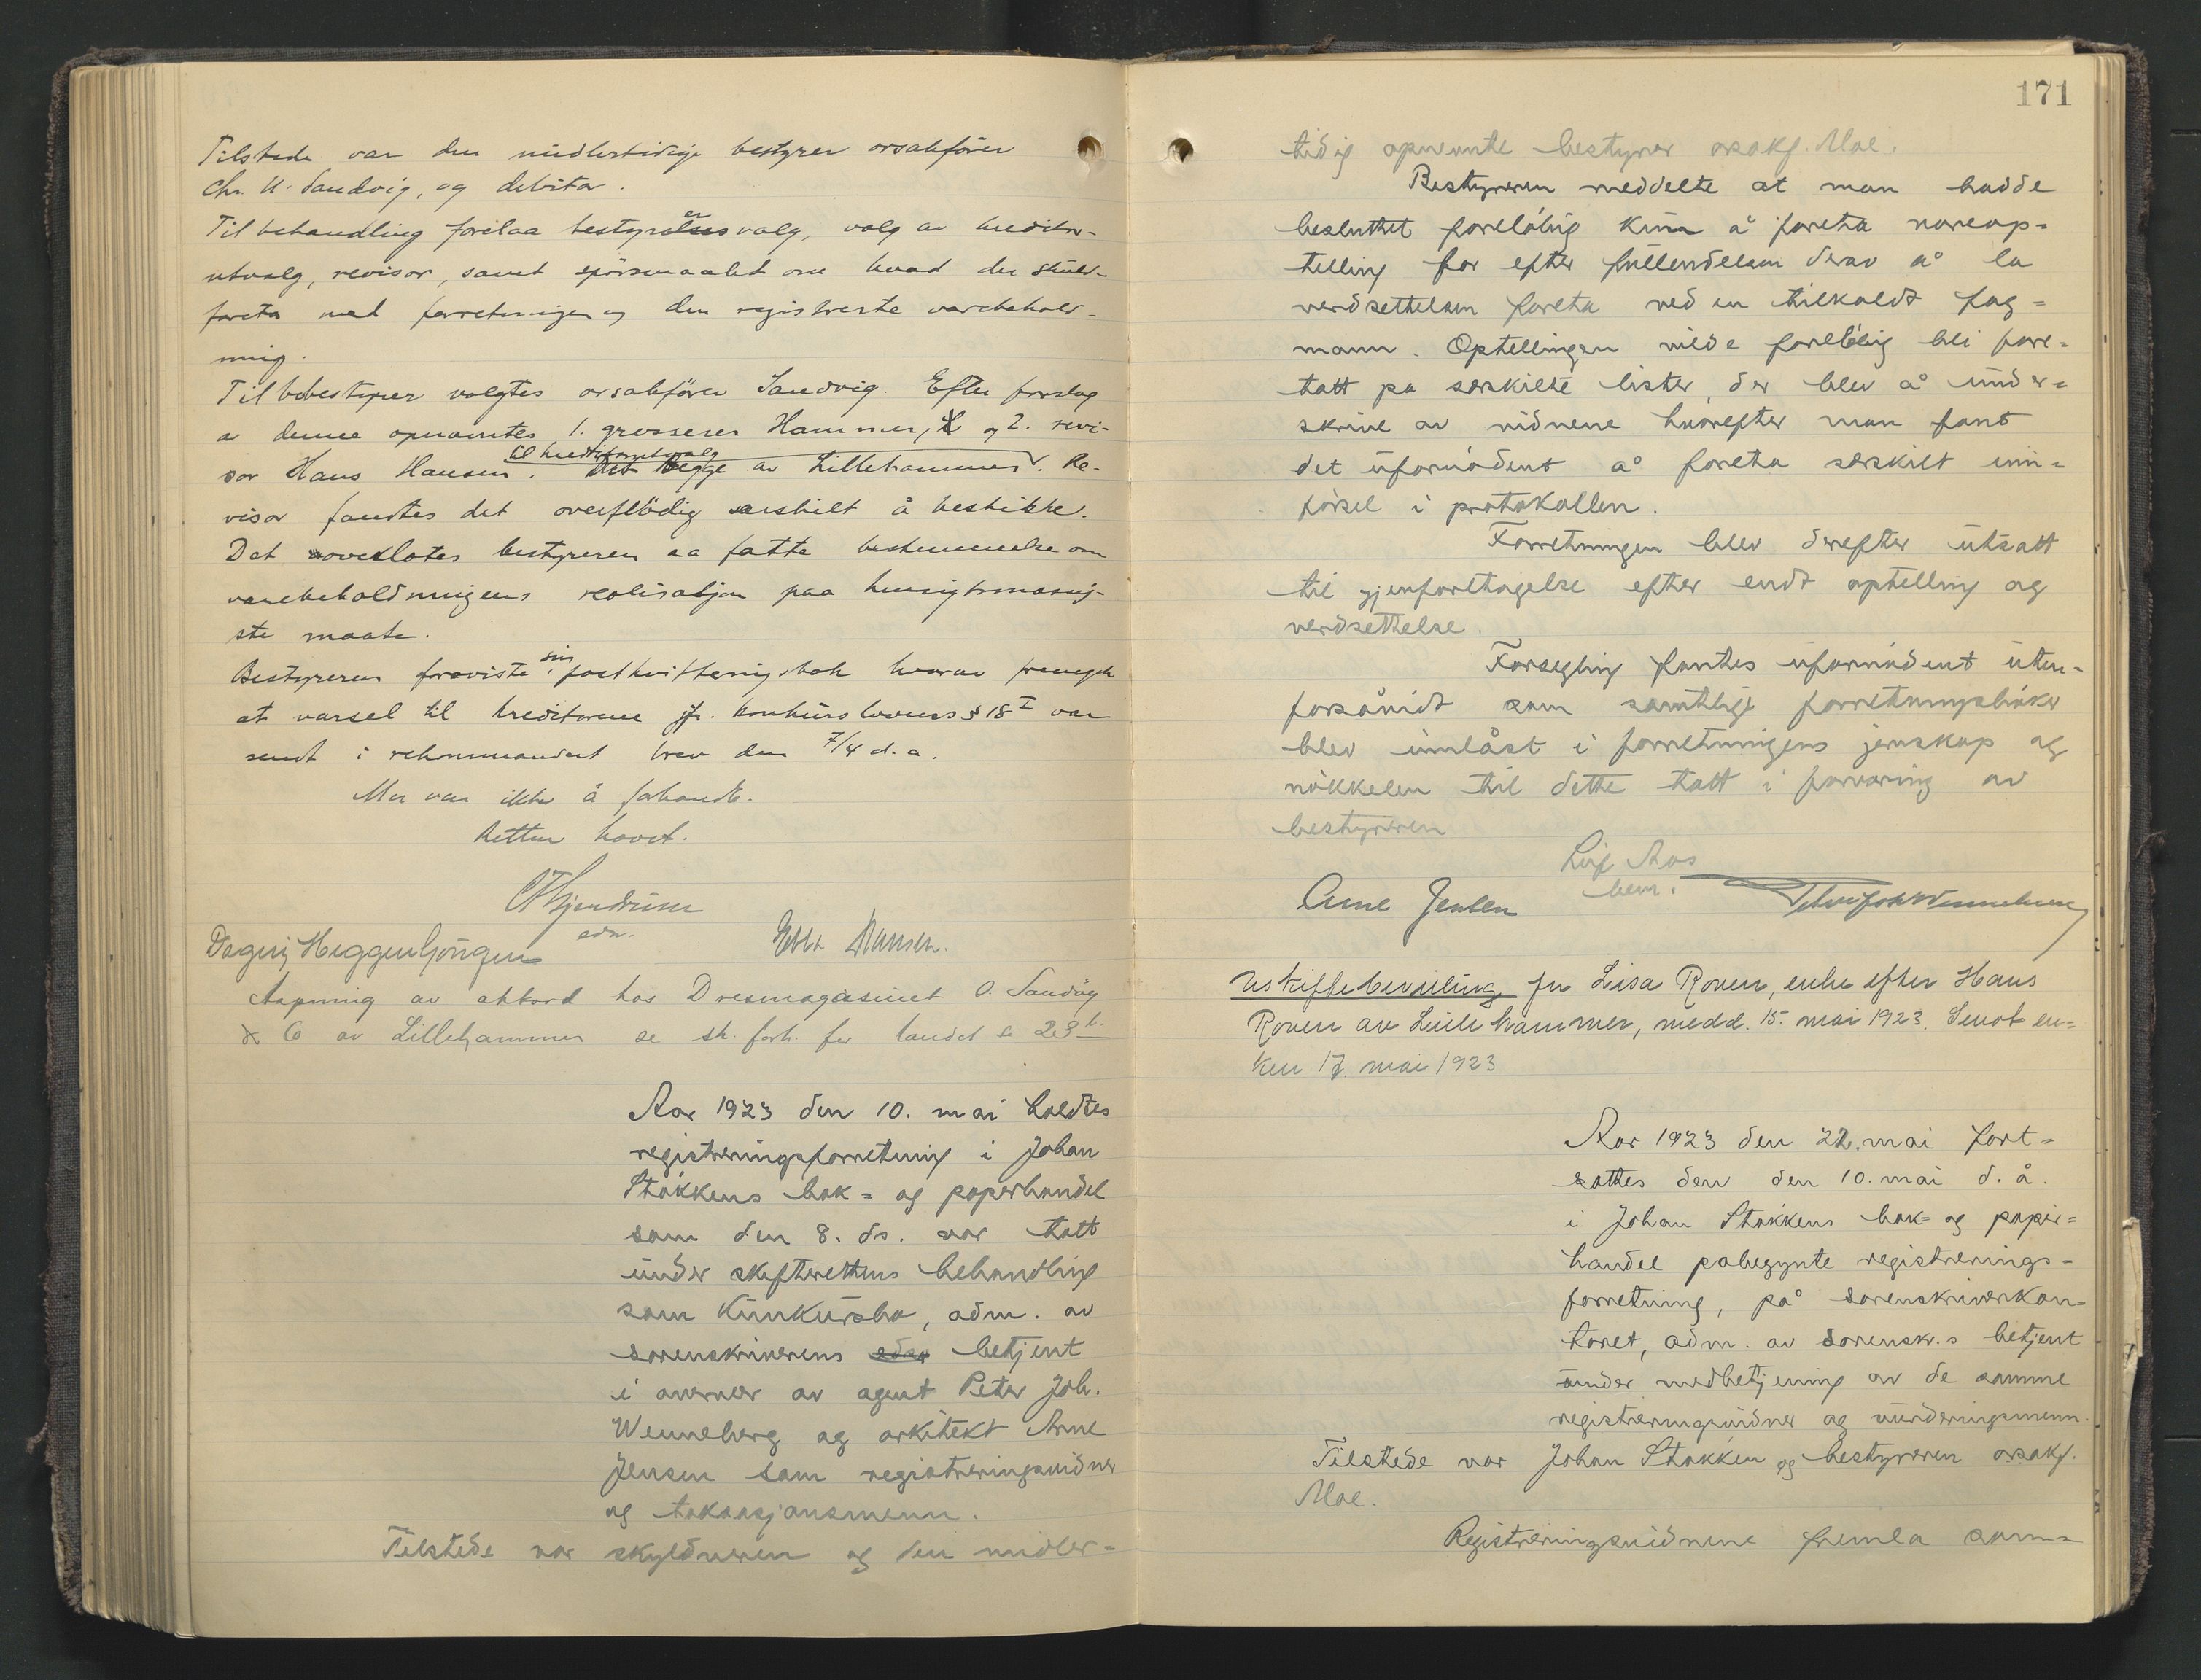 Tilstede var den midlertidige bestyrer orsakfører
Chr. U. Sandvig, og debitor.
Til behandling forelaa bestyrervalg, valg av kreditor-
utvalg, revisor, samt spørsmaalet om hvad der skulde
foretas med forretningen og den registrerte varebehold-
ning.
Til bobestyrer valgtes orsakfører Sandvig. Efter forslag
av denne opnævntes 1. grosserer Hammer, og 2. revi-
sor Hans Hansen. begge av Lillehammer til kreditorutvalg. Re-
visor fandtes det overflødig særskilt å beskikke.
Det overlotes bestyreren aa fatte bestemmelse om
varebeholdningens realisasjon paa hensigtsmæssig-
ste maate.
Bestyreren foreviste sin postkvitteringsbok hvorav fremgik
at varsel til kreditorene jfr. konkurslovens § 18 I var
sendt i rekommandert brev den 7/4 d.a.
Mer var ikke å forhandle.
Retten hævet.
edv.
Dagny Heggenhougen Ebba Hansen.
Aapning av akkord hos Dresmagasinet O. Sandåg
& Co av Lillehammer se sk. forh. for landet s. 23 b.
Aar 1923 den 10. mai holdtes
registreringsforretning i Johan
Stokkens bok= og papirhandel
som den 8. ds. var tatt
under skifterettens behandling
som konkursbo, adm. av
sorenskriverens edsv betjent
i nærvær av agent Peter Joh.
Wenneberg og arkitekt Arne
Jensen som registreringsvidner
og taksasjonsmenn.
Tilstede var skyldneren og den midler=
171
tidig opnevnte bestyrer orsakf. Moe.
Bestyreren meddelte at man hadde
besluttet foreløbig kun å foreta vareop=
telling for efter fullendelsen derav å la
verdsettelsen foreta ved en tilkaldt fag=
mann. Optellingen vilde foreløbig bli fore=
tatt på særskilte lister, der blev å under=
skrive av vidnene hvorefter man fant
det ufornødent å foreta særskilt inn=
førsel i protokollen.
Forretningen blev derefter utsatt
til gjenforetagelse efter endt optelling og
verdsettelse.
Forsegling fantes ufornødent uten=
forsåvidt som samtlige forretningsbøker
blev innlåst i forretningens jernskap og
nøkkelen til dette tatt i forvaring av
bestyreren
Leif Moe
bem.
Arne Jensen Peter Joh Wenneberg
Uskiftebevilling for Lisa Roven, enke efter Hans
Roven av Lillehammer, medd. 15. mai 1923. Sendt en=
ken 17. mai 1923
Aar 1923 den 22. mai fort=
sattes den den 10. mai d. å.
i Johan Stokkens bok= og papir=
handel påbegynte registrerings=
forretning, på sorenskriverkon=
toret, adm. av sorenskr.s betjent
under medbetjening av de samme
registreringsvidner og vurderingsmenn.
Tilstede var Johan Stokken og bestyreren orsakf.
Moe.
Registreringsvidnene fremla sam=